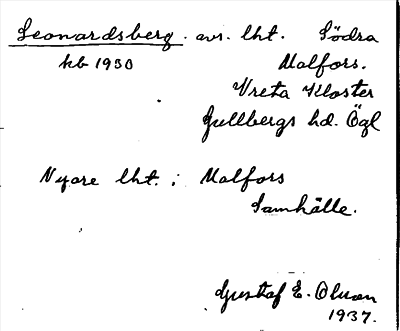 Leonardsberg. avs. lht. Södra
kb 1930 Malfors.
Vreta Kloster
Gullbergs hd. Ögl
Nyare lht. i Malfors
Samhälle.
Gustaf E. Olsson
1937.